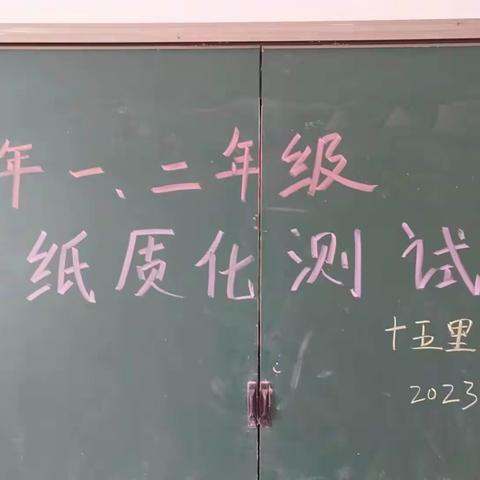 年一、二年级
纸质化测试
十五里
2023